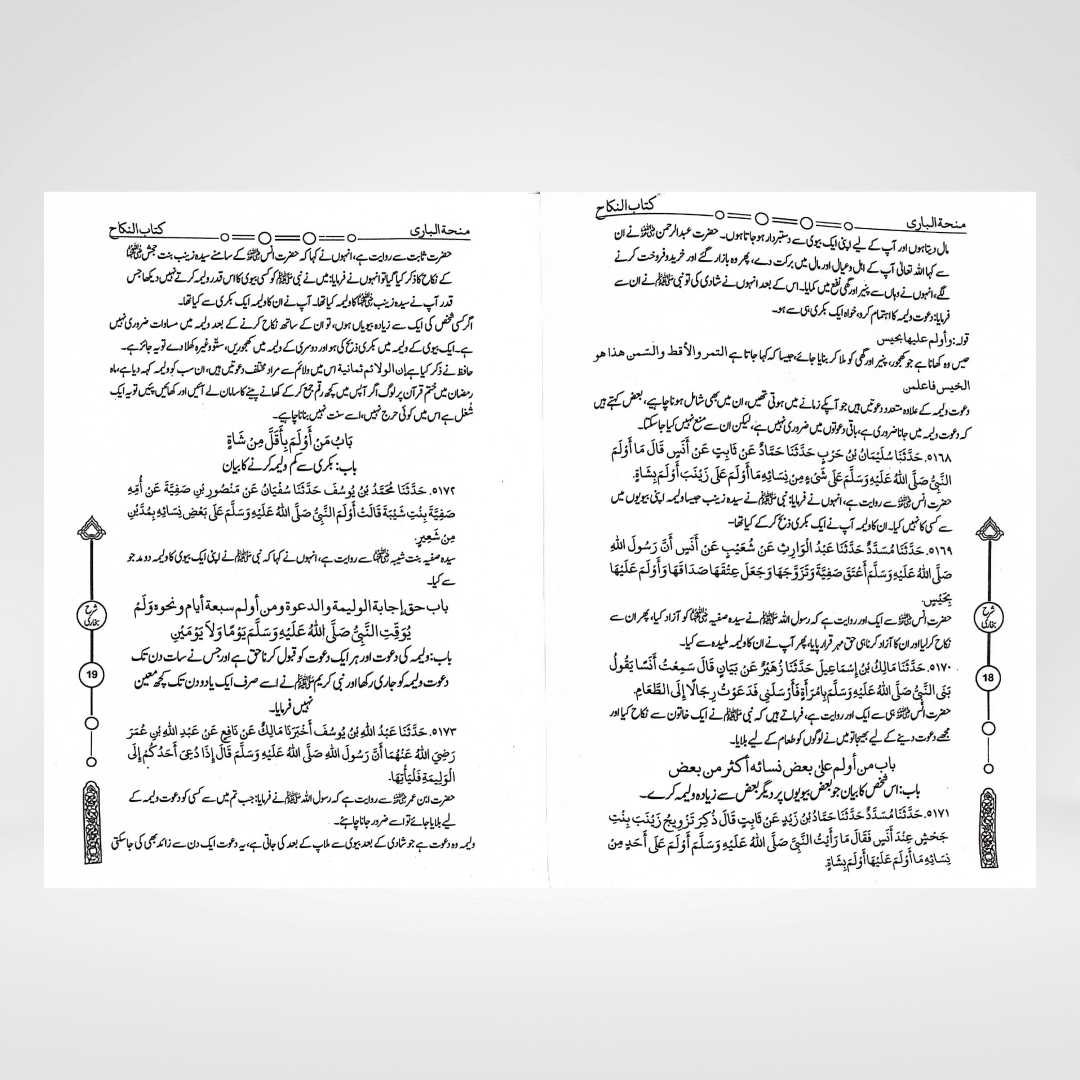 منحة الباری
كتاب النكاح
مال دیتا ہوں اور آپ کے لیے اپنی ایک بیوی سے دستبردار ہو جاتا ہوں۔ حضرت عبدالرحمن ؓ نے ان
سے کہا اللہ تعالیٰ آپ کے اہل و عیال اور مال میں برکت دے، پھر وہ بازار گئے اور خرید و فروخت کرنے
لگے، انہوں نے وہاں سے پنیر اور گھی نفع میں کمایا۔ اس کے بعد انہوں نے شادی کی تو نبی ﷺ نے ان سے
فرمایا: دعوت ولیمہ کا اہتمام کرو، خواہ ایک بکری ہی سے ہو۔
قولہ: وأولم عليها بحيس
حیس وہ کھانا ہے جو کھجور، پنیر اور گھی کو ملا کر بنایا جائے، جیسا کہ کہا جاتا ہے التمر والأقط والسّمن هذا هو
الحيس فاعلمن
دعوت ولیمہ کے علاوہ متعدد دعوتیں ہیں جو آپکے زمانے میں ہوتی تھیں، ان میں بھی شامل ہونا چاہیے، بعض کہتے ہیں
کہ دعوت ولیمہ میں جانا ضروری ہے، باقی دعوتوں میں ضروری نہیں ہے، لیکن ان سے منع نہیں کیا جا سکتا۔
٥١٦٨. حَدَّثَنَا سُلَيْمَانُ بْنُ حَرْبٍ حَدَّثَنَا حَمَّادٌ عَنْ ثَابِتٍ عَنْ أَنَسٍ قَالَ مَا أَوْلَمَ
النَّبِيُّ صَلَّى اللهُ عَلَيْهِ وَسَلَّمَ عَلَى شَيْءٍ مِنْ نِسَائِهِ مَا أَوْلَمَ عَلَى زَيْنَبَ أَوْلَمَ بِشَاةٍ.
حضرت انس ؓ سے روایت ہے، انہوں نے فرمایا: نبی ﷺ نے سیدہ زینب جیسا ولیمہ اپنی بیویوں میں
سے کسی کا نہیں کیا۔ ان کا ولیمہ آپ نے ایک بکری ذبح کر کے کیا تھا۔
٥١٦٩. حَدَّثَنَا مُسَدَّدٌ حَدَّثَنَا عَبْدُ الْوَارِثِ عَنْ شُعَيْبٍ عَنْ أَنَسٍ أَنَّ رَسُولَ اللهِ
صَلَّى اللهُ عَلَيْهِ وَسَلَّمَ أَعْتَقَ صَفِيَّةَ وَتَزَوَّجَهَا وَجَعَلَ عِتْقَهَا صَدَاقَهَا وَأَوْلَمَ عَلَيْهَا
بِحَيْسٍ.
حضرت انس ؓ سے ایک اور روایت ہے کہ رسول اللہ ﷺ نے سیدہ صفیہ ؓ کو آزاد کیا، پھر ان سے
نکاح کر لیا اور ان کا آزاد کرنا ہی حق مہر قرار پایا، پھر آپ نے ان کا ولیمہ ملیدہ سے کیا۔
٥١٧٠. حَدَّثَنَا مَالِكُ بْنُ إِسْمَاعِيلَ حَدَّثَنَا زُهَيْرٌ عَنْ بَيَانٍ قَالَ سَمِعْتُ أَنَسًا يَقُولُ
بَنَى النَّبِيُّ صَلَّى اللهُ عَلَيْهِ وَسَلَّمَ بِامْرَأَةٍ فَأَرْسَلَنِي فَدَعَوْتُ رِجَالًا إِلَى الطَّعَامِ.
حضرت انس ؓ ہی سے ایک اور روایت ہے، فرماتے ہیں کہ نبی ﷺ نے ایک خاتون سے نکاح کیا اور
مجھے دعوت دینے کے لیے بھیجا تو میں نے لوگوں کو طعام کے لیے بلایا۔
باب من أولم على بعض نسائه أكثر من بعض
باب: اس شخص کا بیان جو بعض بیویوں پر دیگر بعض سے زیادہ ولیمہ کرے۔
٥١٧١. حَدَّثَنَا مُسَدَّدٌ حَدَّثَنَا حَمَّادُ بْنُ زَيْدٍ عَنْ ثَابِتٍ قَالَ ذُكِرَ تَزْوِيجُ زَيْنَبَ بِنْتِ
جَحْشٍ عِنْدَ أَنَسٍ فَقَالَ مَا رَأَيْتُ النَّبِيَّ صَلَّى اللهُ عَلَيْهِ وَسَلَّمَ أَوْلَمَ عَلَى أَحَدٍ مِنْ
نِسَائِهِ مَا أَوْلَمَ عَلَيْهَا أَوْلَمَ بِشَاةٍ.
شرح بخاری
18
منحة الباری
كتاب النكاح
حضرت ثابت سے روایت ہے، انہوں نے کہا کہ حضرت انس ؓ کے سامنے سیدہ زینب بنت جحش ؓ
کے نکاح کا ذکر کیا گیا تو انہوں نے فرمایا: میں نے نبی ﷺ کو کسی بیوی کا اس قدر ولیمہ کرتے نہیں دیکھا جس
قدر آپ نے سیدہ زینب ؓ کا ولیمہ کیا تھا۔ آپ نے ان کا ولیمہ ایک بکری سے کیا تھا۔
اگر کسی شخص کی ایک سے زیادہ بیویاں ہوں، تو ان کے ساتھ نکاح کرنے کے بعد ولیمہ میں مساوات ضروری نہیں
ہے۔ ایک بیوی کے ولیمہ میں بکری ذبح کی ہو اور دوسری کے ولیمہ میں کھجوریں، ستّو وغیرہ کھلا دے تو یہ جائز ہے۔
حافظ نے ذکر کیا ہے إن الولائم ثمانية اس میں ولائم سے مراد مختلف دعوتیں ہیں، ان سب کو ولیمہ کہہ دیا ہے، ماہ
رمضان میں ختم قرآن پر لوگ اگر آپس میں کچھ رقم جمع کر کے کھانے پینے کا سامان لے آئیں اور کھائیں پئیں تو یہ ایک
شغل ہے اس میں کوئی حرج نہیں، اسے سنت نہیں بنانا چاہیے۔
بَابُ مَنْ أَوْلَمَ بِأَقَلَّ مِنْ شَاةٍ
باب: بکری سے کم ولیمہ کرنے کا بیان
٥١٧٢. حَدَّثَنَا مُحَمَّدُ بْنُ يُوسُفَ حَدَّثَنَا سُفْيَانُ عَنْ مَنْصُورِ بْنِ صَفِيَّةَ عَنْ أُمِّهِ
صَفِيَّةَ بِنْتِ شَيْبَةَ قَالَتْ أَوْلَمَ النَّبِيُّ صَلَّى اللهُ عَلَيْهِ وَسَلَّمَ عَلَى بَعْضِ نِسَائِهِ بِمُدَّيْنِ
مِنْ شَعِيرٍ.
سیدہ صفیہ بنت شیبہ ؓ سے روایت ہے، انہوں نے کہا کہ نبی ﷺ نے اپنی ایک بیوی کا ولیمہ دو مد جو
سے کیا۔
باب حق إجابة الوليمة والدعوة ومن أولم سبعة أيام ونحوه وَلَمْ
يُوَقِّتِ النَّبِيُّ صَلَّى اللهُ عَلَيْهِ وَسَلَّمَ يَوْمًا وَلَا يَوْمَيْنِ
باب: ولیمہ کی دعوت اور ہر ایک دعوت کو قبول کرنا حق ہے اور جس نے سات دن تک
دعوت ولیمہ کو جاری رکھا اور نبی کریم ﷺ نے اسے صرف ایک یا دو دن تک کچھ معین
نہیں فرمایا۔
٥١٧٣. حَدَّثَنَا عَبْدُ اللهِ بْنُ يُوسُفَ أَخْبَرَنَا مَالِكٌ عَنْ نَافِعٍ عَنْ عَبْدِ اللهِ بْنِ عُمَرَ
رَضِيَ اللهُ عَنْهُمَا أَنَّ رَسُولَ اللهِ صَلَّى اللهُ عَلَيْهِ وَسَلَّمَ قَالَ إِذَا دُعِيَ أَحَدُكُمْ إِلَى
الْوَلِيمَةِ فَلْيَأْتِهَا.
حضرت ابن عمر ؓ سے روایت ہے کہ رسول اللہ ﷺ نے فرمایا: جب تم میں سے کسی کو دعوت ولیمہ کے
لیے بلایا جائے تو اسے ضرور جانا چاہئے۔
ولیمہ وہ دعوت ہے جو شادی کے بعد بیوی سے ملاپ کے بعد کی جاتی ہے، یہ دعوت ایک دن سے زائد بھی کی جا سکتی
شرح بخاری
19